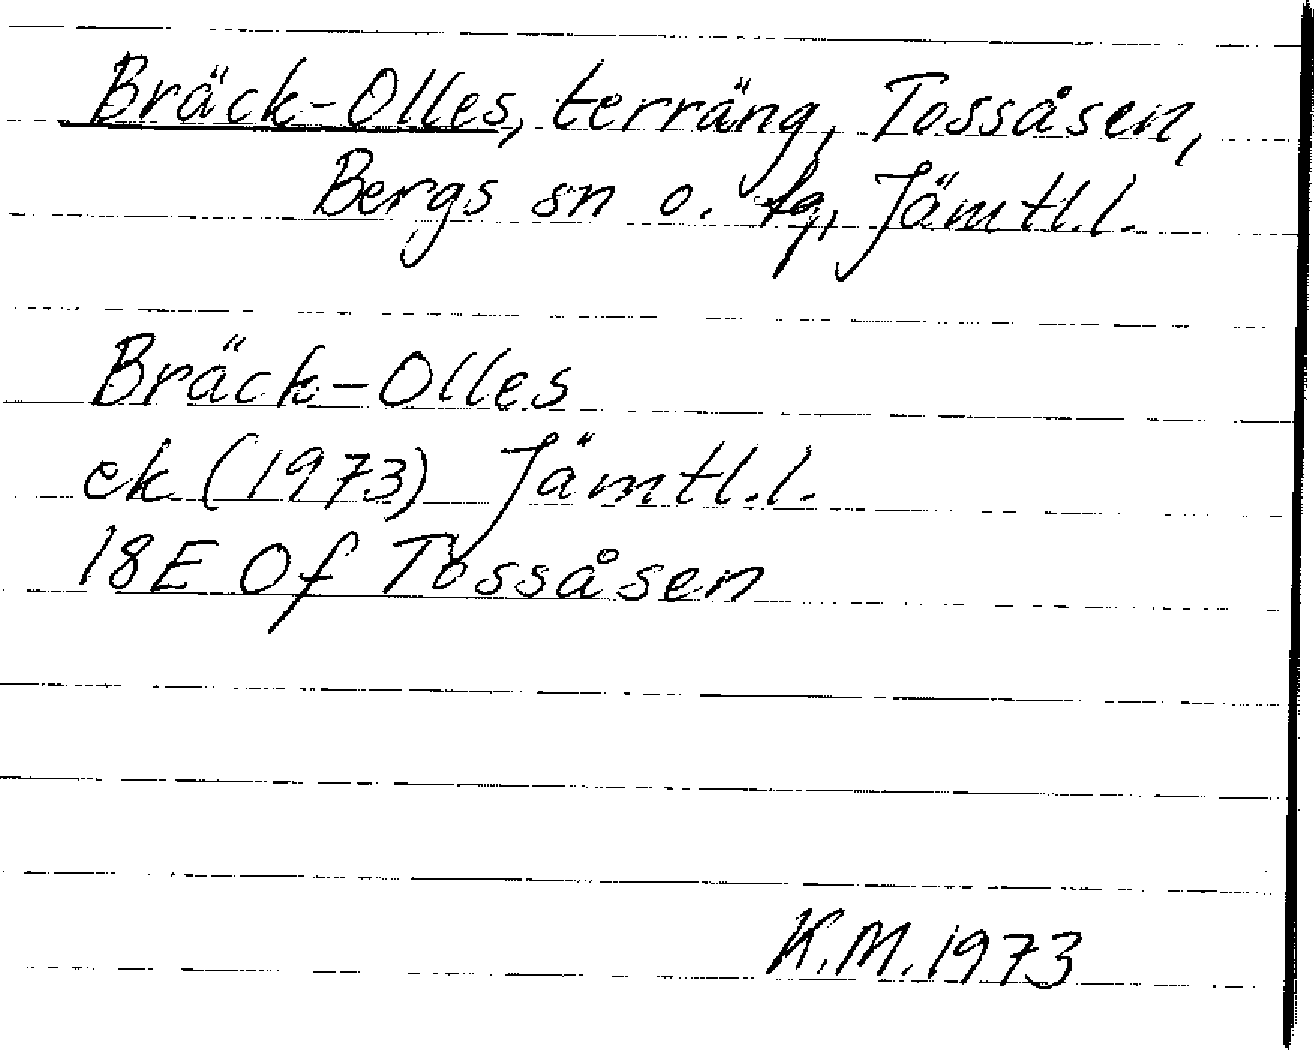 Bräck-Olles, terräng, Tossåsen,
Bergs sn o. tg, Jämtl.l.
Bräck-Olles
ek (1973) Jämtl.l.
18E Of Tossåsen
K.M. 1973